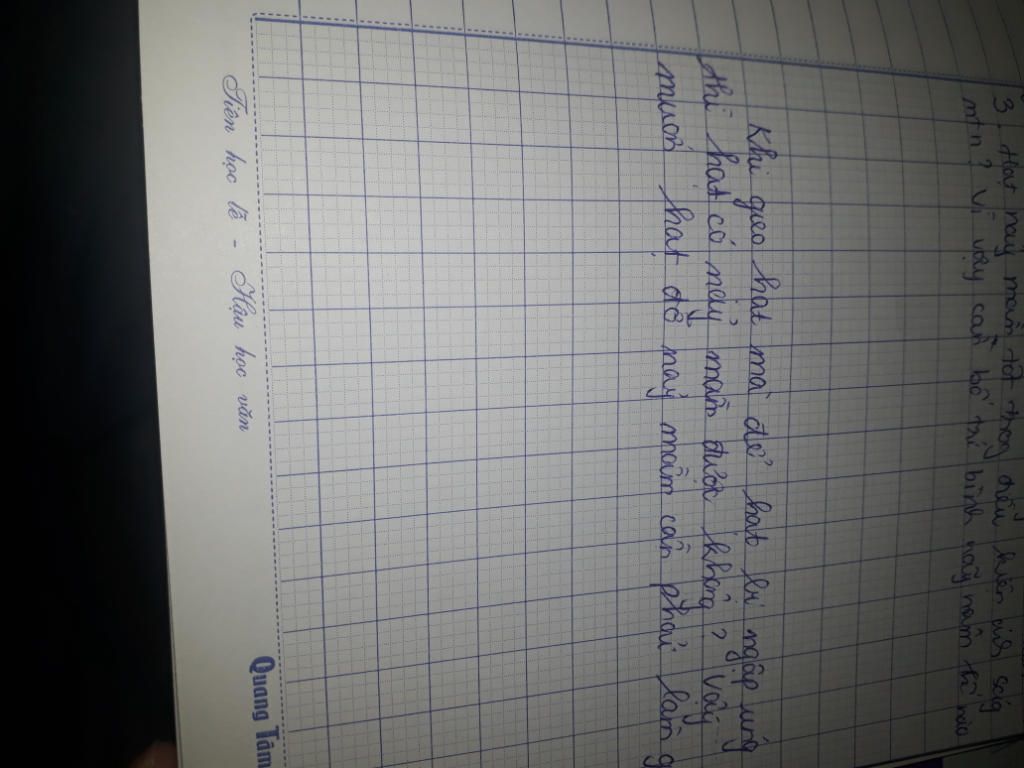 3. Hạt nảy mầm tốt trong điều kiện ánh sáng
ntn? Vì vậy cần bố trí bình nảy mầm thế nào
Khi gieo hạt mà để hạt bị ngập úng
thì hạt có nảy mầm được không? Vậy
muốn hạt đỗ nảy mầm cần phải làm g
Tiên học lễ - Hậu học văn
Quang Tâm